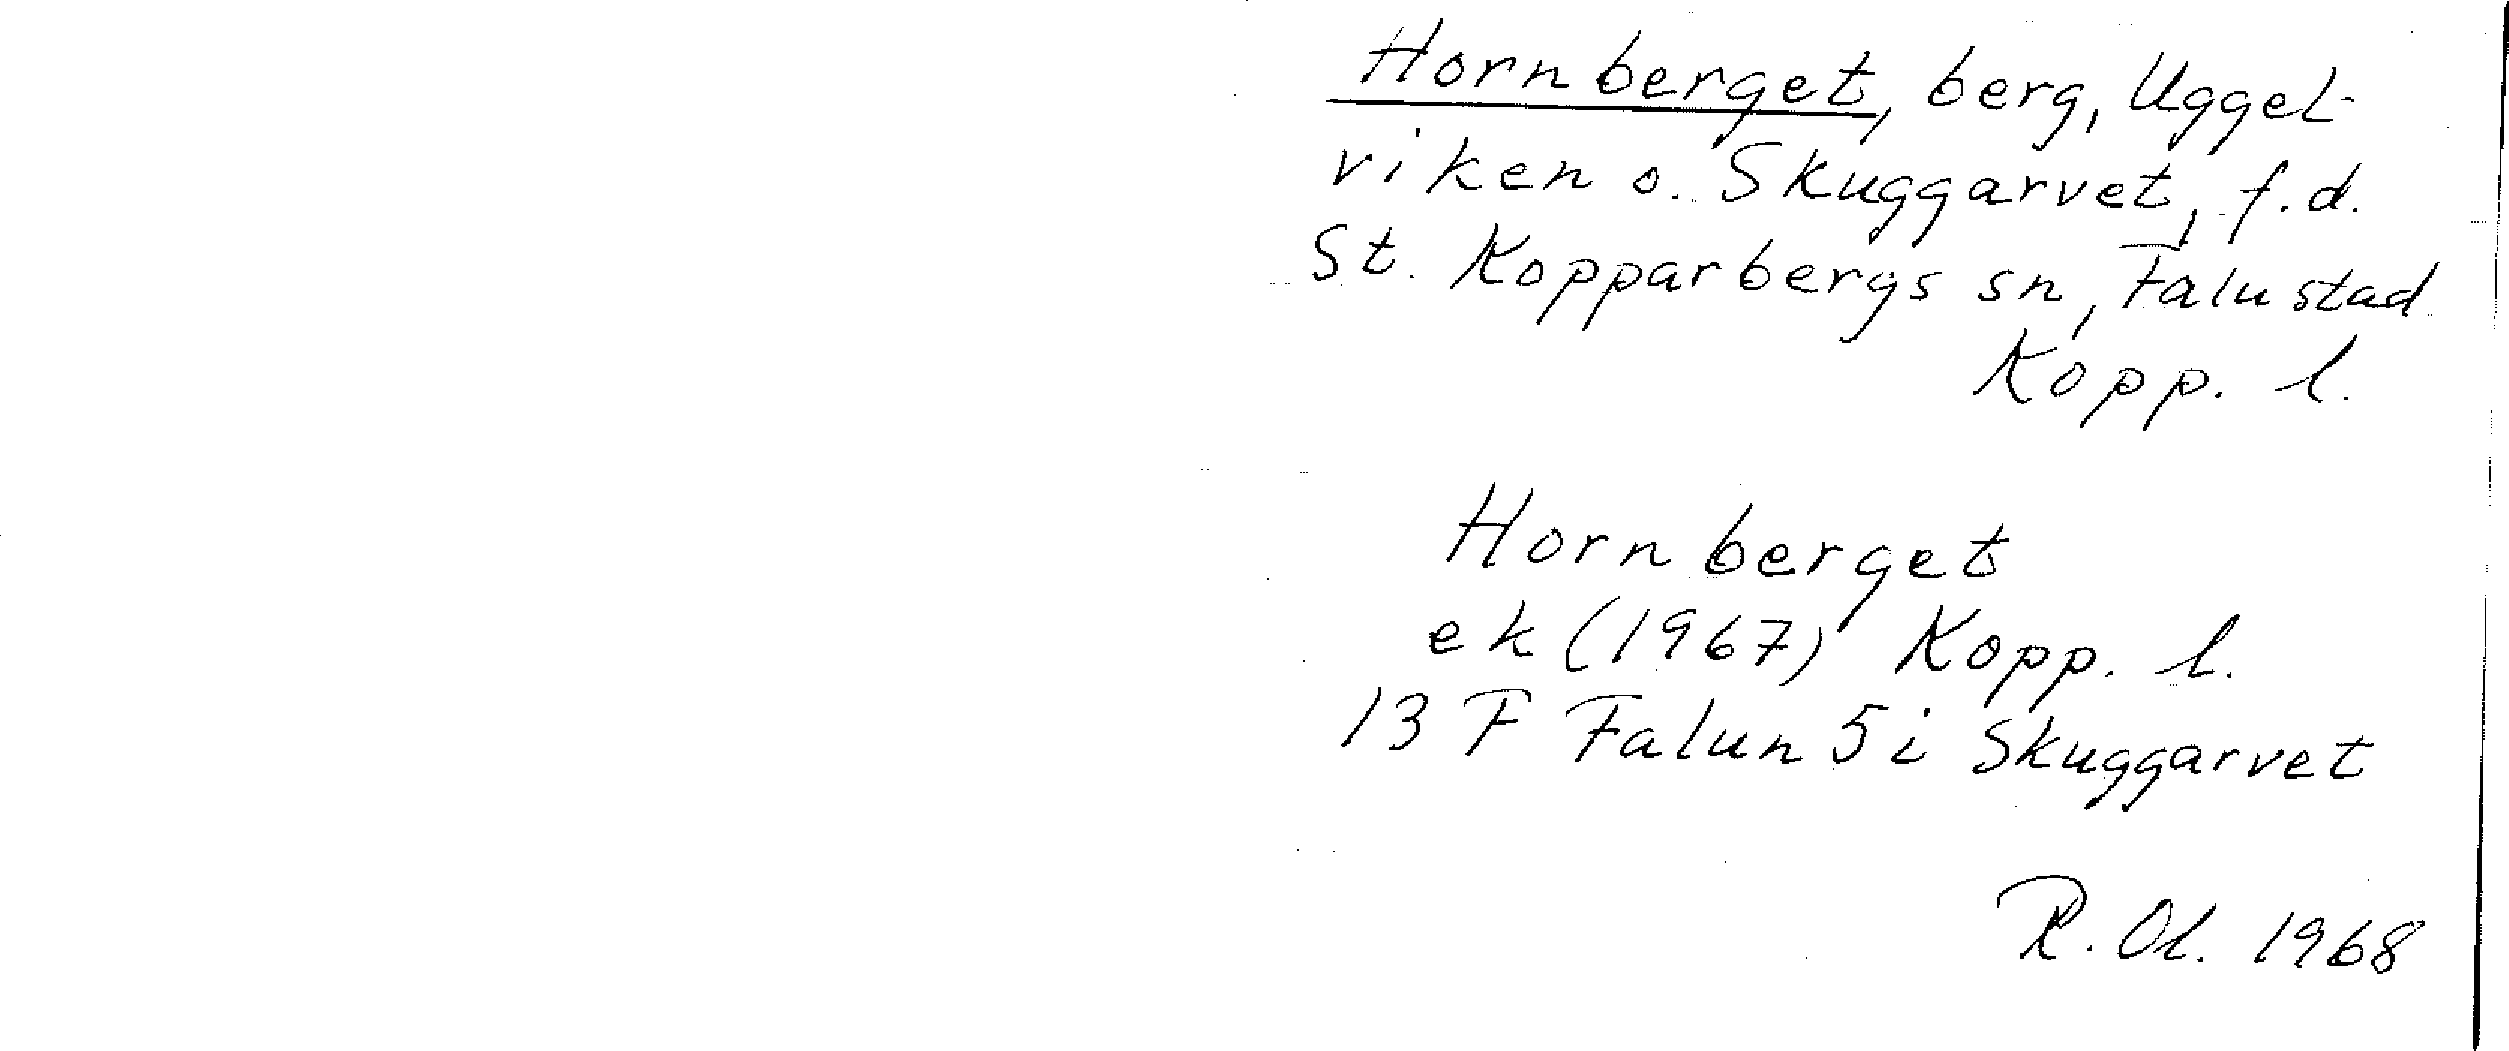 Hornberget, berg, Uggel-
viken o. Skuggarvet, f.d.
St. Kopparbergs sn, Falu stad
Kopp. l.
Hornberget
ek (1967) Kopp. l.
13 F Falun 5 i Skuggarvet
R. Ol. 1968